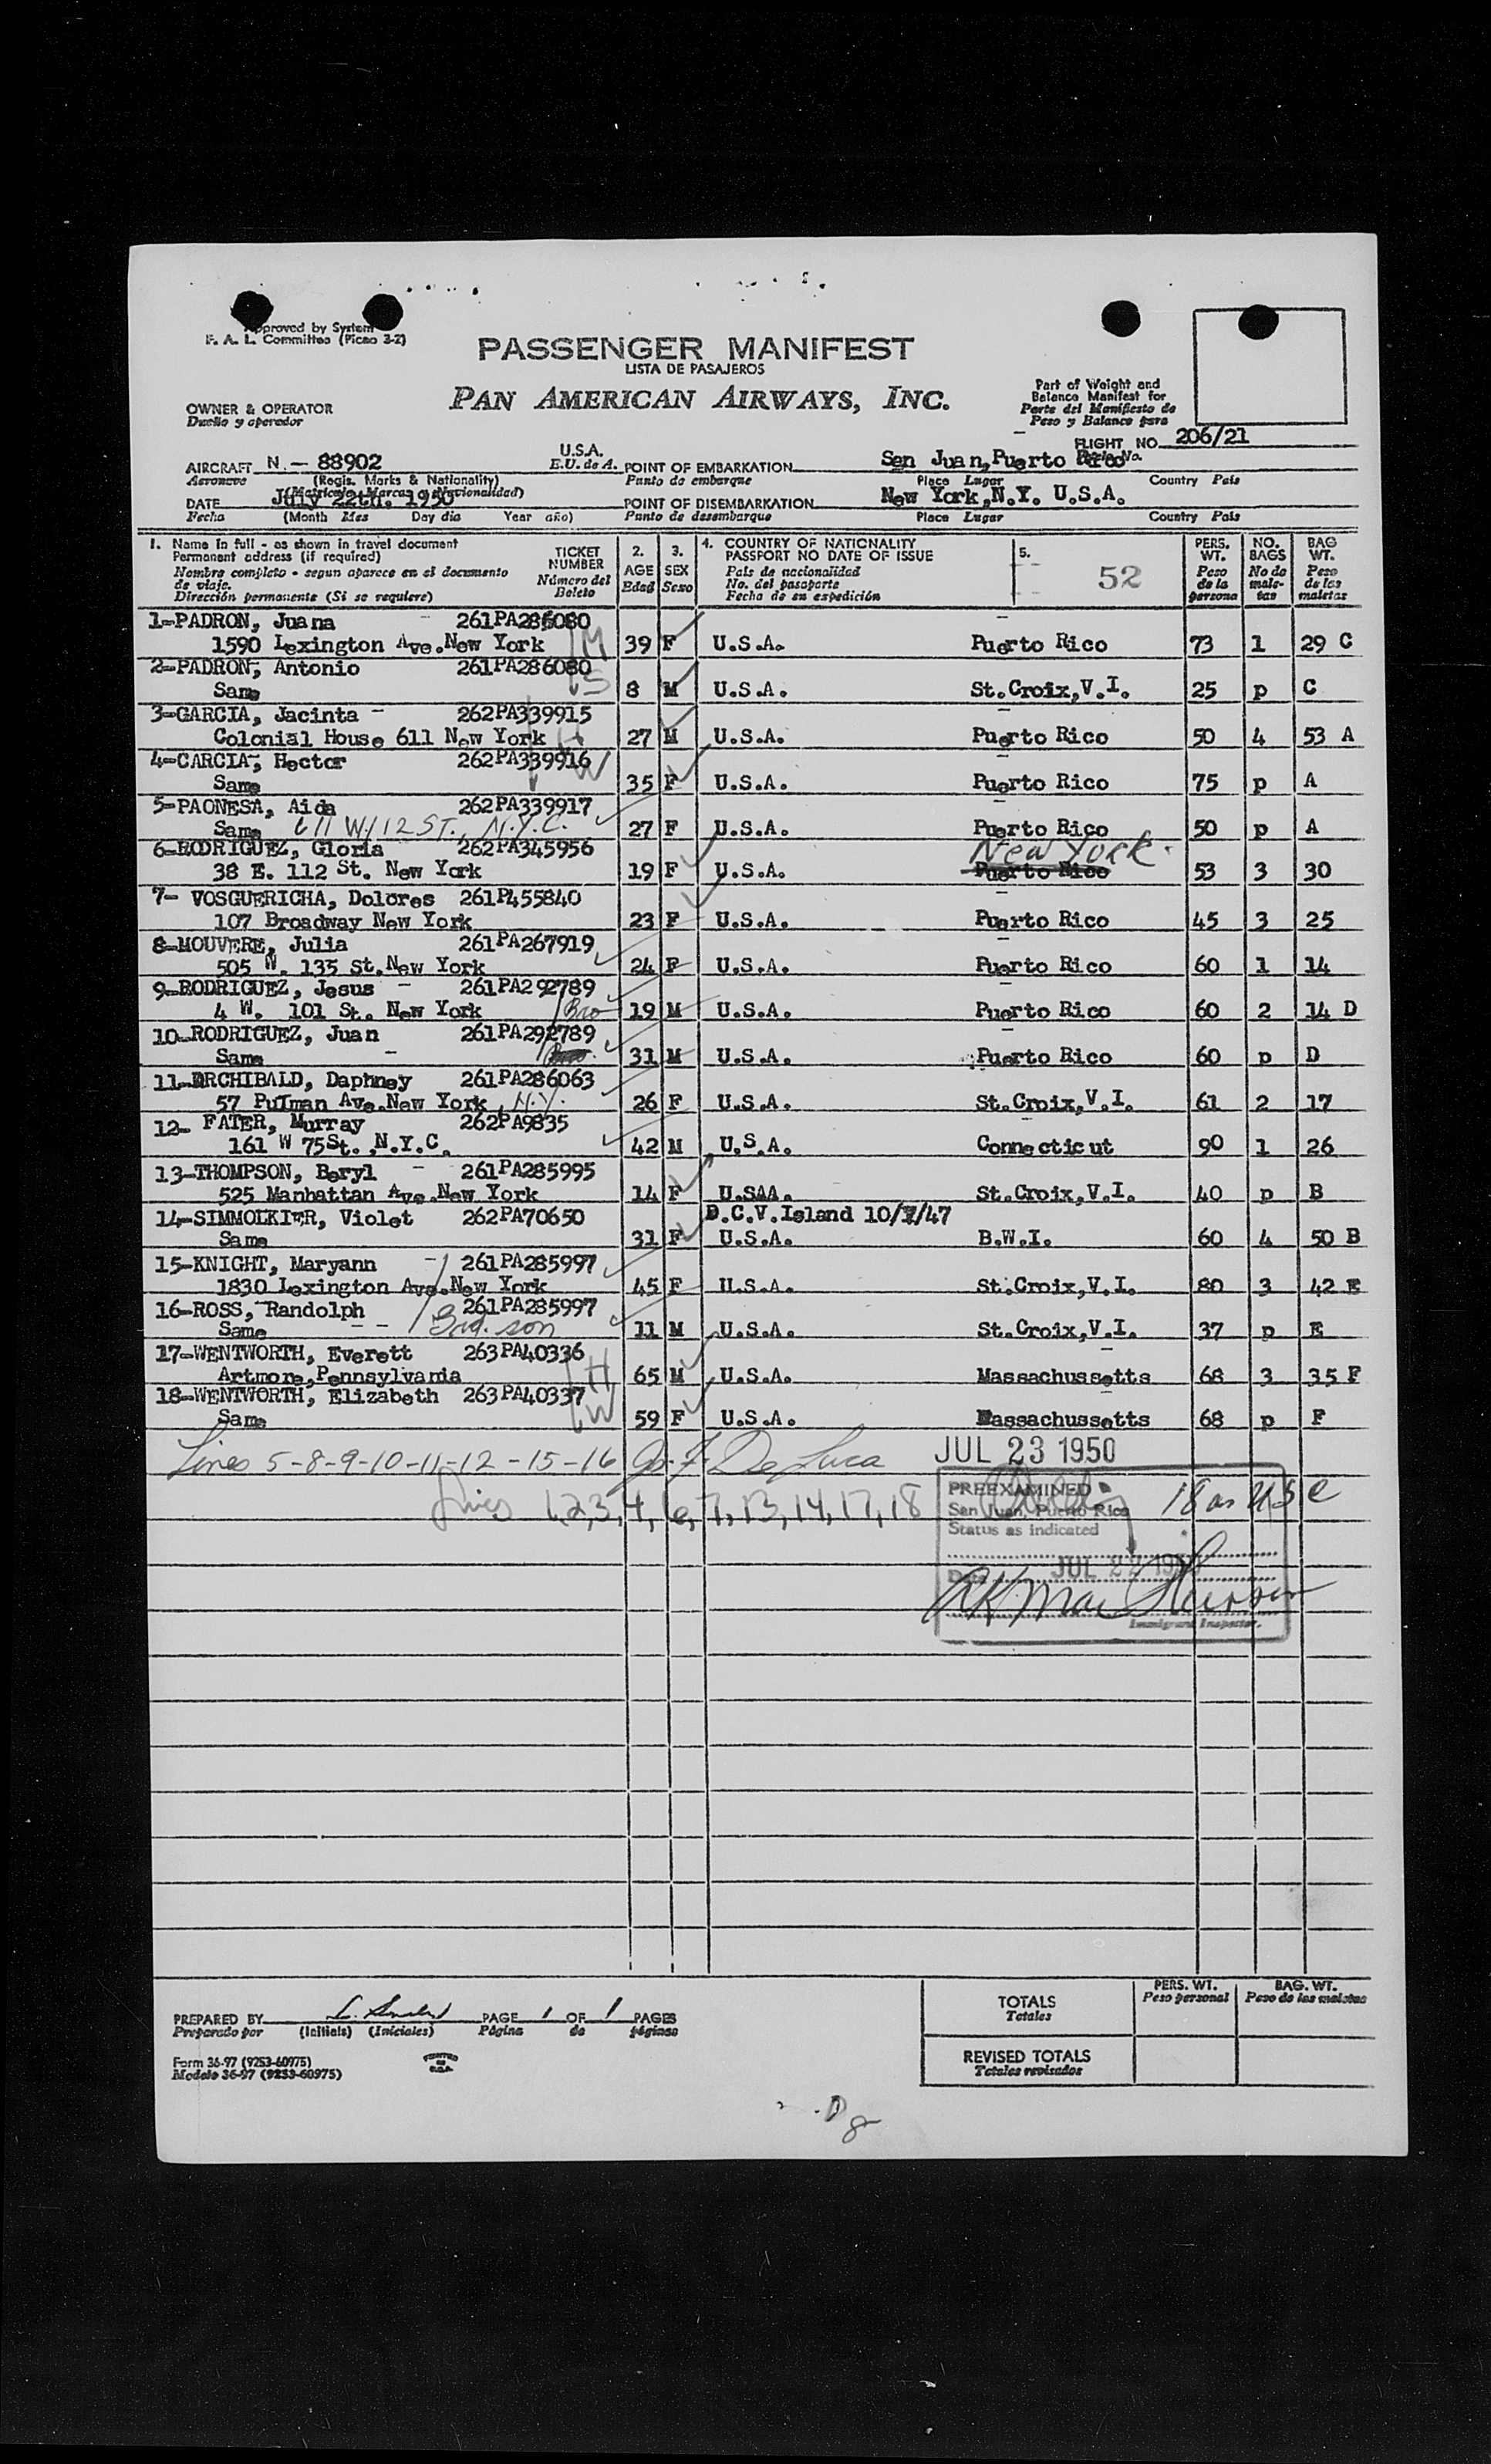 Approved by System
F. A. L. Committee (Picao 3-2)
PASSENGER MANIFEST
LISTA DE PASAJEROS
PAN AMERICAN AIRWAYS, INC.
Part of Weight and
Balance Manifest for
Parte del Manifiesto de
Peso y Balance para
OWNER & OPERATOR
Dueño y operador
FLIGHT NO. 206/21
AIRCRAFT N.- 88902 U.S.A. E.U. de A. POINT OF EMBARKATION San Juan, Puerto Rico
Aeronave (Regis. Marks & Nationality) Punto de embarque Place Lugar Country País
(Matricula, Marcas y Nacionalidad)
DATE July 22th. 1950 POINT OF DISEMBARKATION New York, N.Y. U.S.A.
Fecha (Month Mes Day dia Year año) Punto de desembarque Place Lugar Country País
1. Name in full - as shown in travel document
Permanent address (if required)
Nombre completo - segun aparece en el documento
de viaje.
Dirección permanente (Si se requiere)
TICKET NUMBER Número del Boleto
2. AGE Edad
3. SEX Sexo
4. COUNTRY OF NATIONALITY
PASSPORT NO DATE OF ISSUE
País de nacionalidad
No. del pasaporte
Fecha de su expedición
5. 52
PERS. WT. Peso de la persona
NO. BAGS No de maletas
BAG WT. Peso de las maletas
1-PADRON, Juana - 261PA286080
1590 Lexington Ave. New York M 39 F U.S.A. Puerto Rico 73 1 29 C
2-PADRON, Antonio 261PA286080
Same S 8 M U.S.A. St.Croix,V.I. 25 p C
3-GARCIA, Jacinta - 262PA339915
Colonial House 611 New York H 27 M U.S.A. Puerto Rico 50 4 53 A
4-CARCIA, Hector 262PA339916
Same W 35 F U.S.A. Puerto Rico 75 p A
5-PAONESA, Aida 262PA339917
Same 611 W. 112 ST., N.Y.C. 27 F U.S.A. Puerto Rico 50 p A
6-RODRIGUEZ, Gloria 262PA345956 New York
38 E. 112 St. New York 19 F U.S.A. Puerto Rico 53 3 30
7- VOSGUERICHA, Dolores 261P455840
107 Broadway New York 23 F U.S.A. Puerto Rico 45 3 25
8-MOUVERE, Julia 261PA267919
505 W. 135 St.New York 24 F U.S.A. Puerto Rico 60 1 14
9-RODRIGUEZ, Jesus - 261PA292789
4 W. 101 St. New York Bro 19 M U.S.A. Puerto Rico 60 2 14 D
10-RODRIGUEZ, Juan 261PA292789
Same - 31 M U.S.A. Puerto Rico 60 p D
11-ARCHIBALD, Daphney 261PA286063
57 Pulman Ave.New York, N.Y. 26 F U.S.A. St.Croix,V.I. 61 2 17
12- FATER, Murray 262PA9835
161 W 75St. ,N.Y.C. 42 M U.S.A. Connecticut 90 1 26
13-THOMPSON, Beryl - 261PA285995
525 Manhattan Ave.New York 14 F U.SAA. St.Croix,V.I. 40 p B
14-SIMMOLKIER, Violet 262PA70650 D.C.V.Island 10/7/47
Same 31 F U.S.A. B.W.I. 60 4 50 B
15-KNIGHT, Maryann - 261PA285997
1830 Lexington Ave.New York 45 F U.S.A. St.Croix,V.I. 80 3 42 E
16-ROSS, Randolph 261PA285997
Same - - Grd. son 11 M U.S.A. St.Croix,V.I. 37 p E
17-WENTWORTH, Everett 263PA40336
Artmore,Pennsylvania H 65 M U.S.A. Massachussetts 68 3 35 F
18-WENTWORTH, Elizabeth 263PA40337
Same W 59 F U.S.A. Massachussetts 68 p F
Lines 5-8-9-10-11-12-15-16 Jos. F. De Luca JUL 23 1950
Lines 1,2,3,4,6,7,13,14,17,18 18 as USC
PREEXAMINED
San Juan, Puerto Rico
Status as indicated
Date JUL 22 1950
Immigrant Inspector.
PREPARED BY PAGE 1 OF 1 PAGES
Preparado por (Initials) (Iniciales) Página de páginas
Form 36-97 (9253-60975)
Modelo 36-97 (9253-60975)
PRINTED IN U.S.A.
PERS. WT. Peso personal
BAG. WT. Peso de las maletas
TOTALS
Totales
REVISED TOTALS
Totales revisados